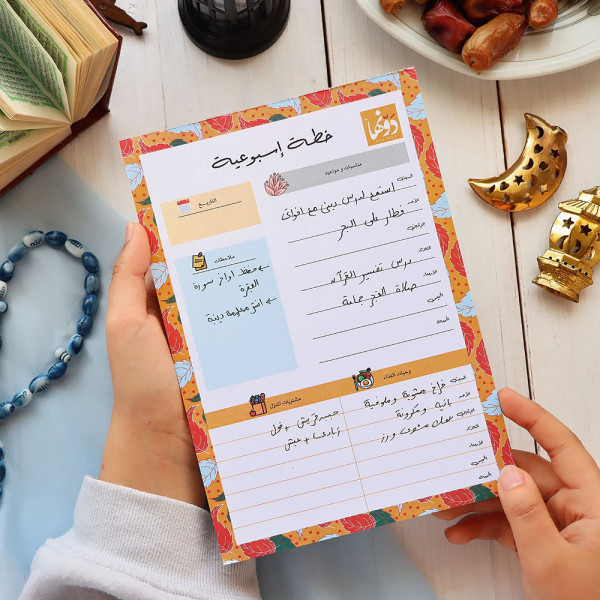 دوّنها
خطة إسبوعية
مناسبات و مواعيد
السبت
استمع لدرس ديني مع اخواتي
الأحد
فطار على البحر
الإثنين
الثلاثاء
درس تفسير القرآن
الأربعاء
صلاة الفجر جماعة
الخميس
الجمعة
التاريخ
ملاحظات
حفظ اواخر سورة
البقرة
وجبات الغداء
السبت فراخ مشوية وملوخية
الأحد بانيه ومكرونة
الإثنين سمك مشوي ورز
الثلاثاء
الأربعاء
الخميس
الجمعة
مشتريات المنزل
جبنه قريش + فول
زبادى + عيش